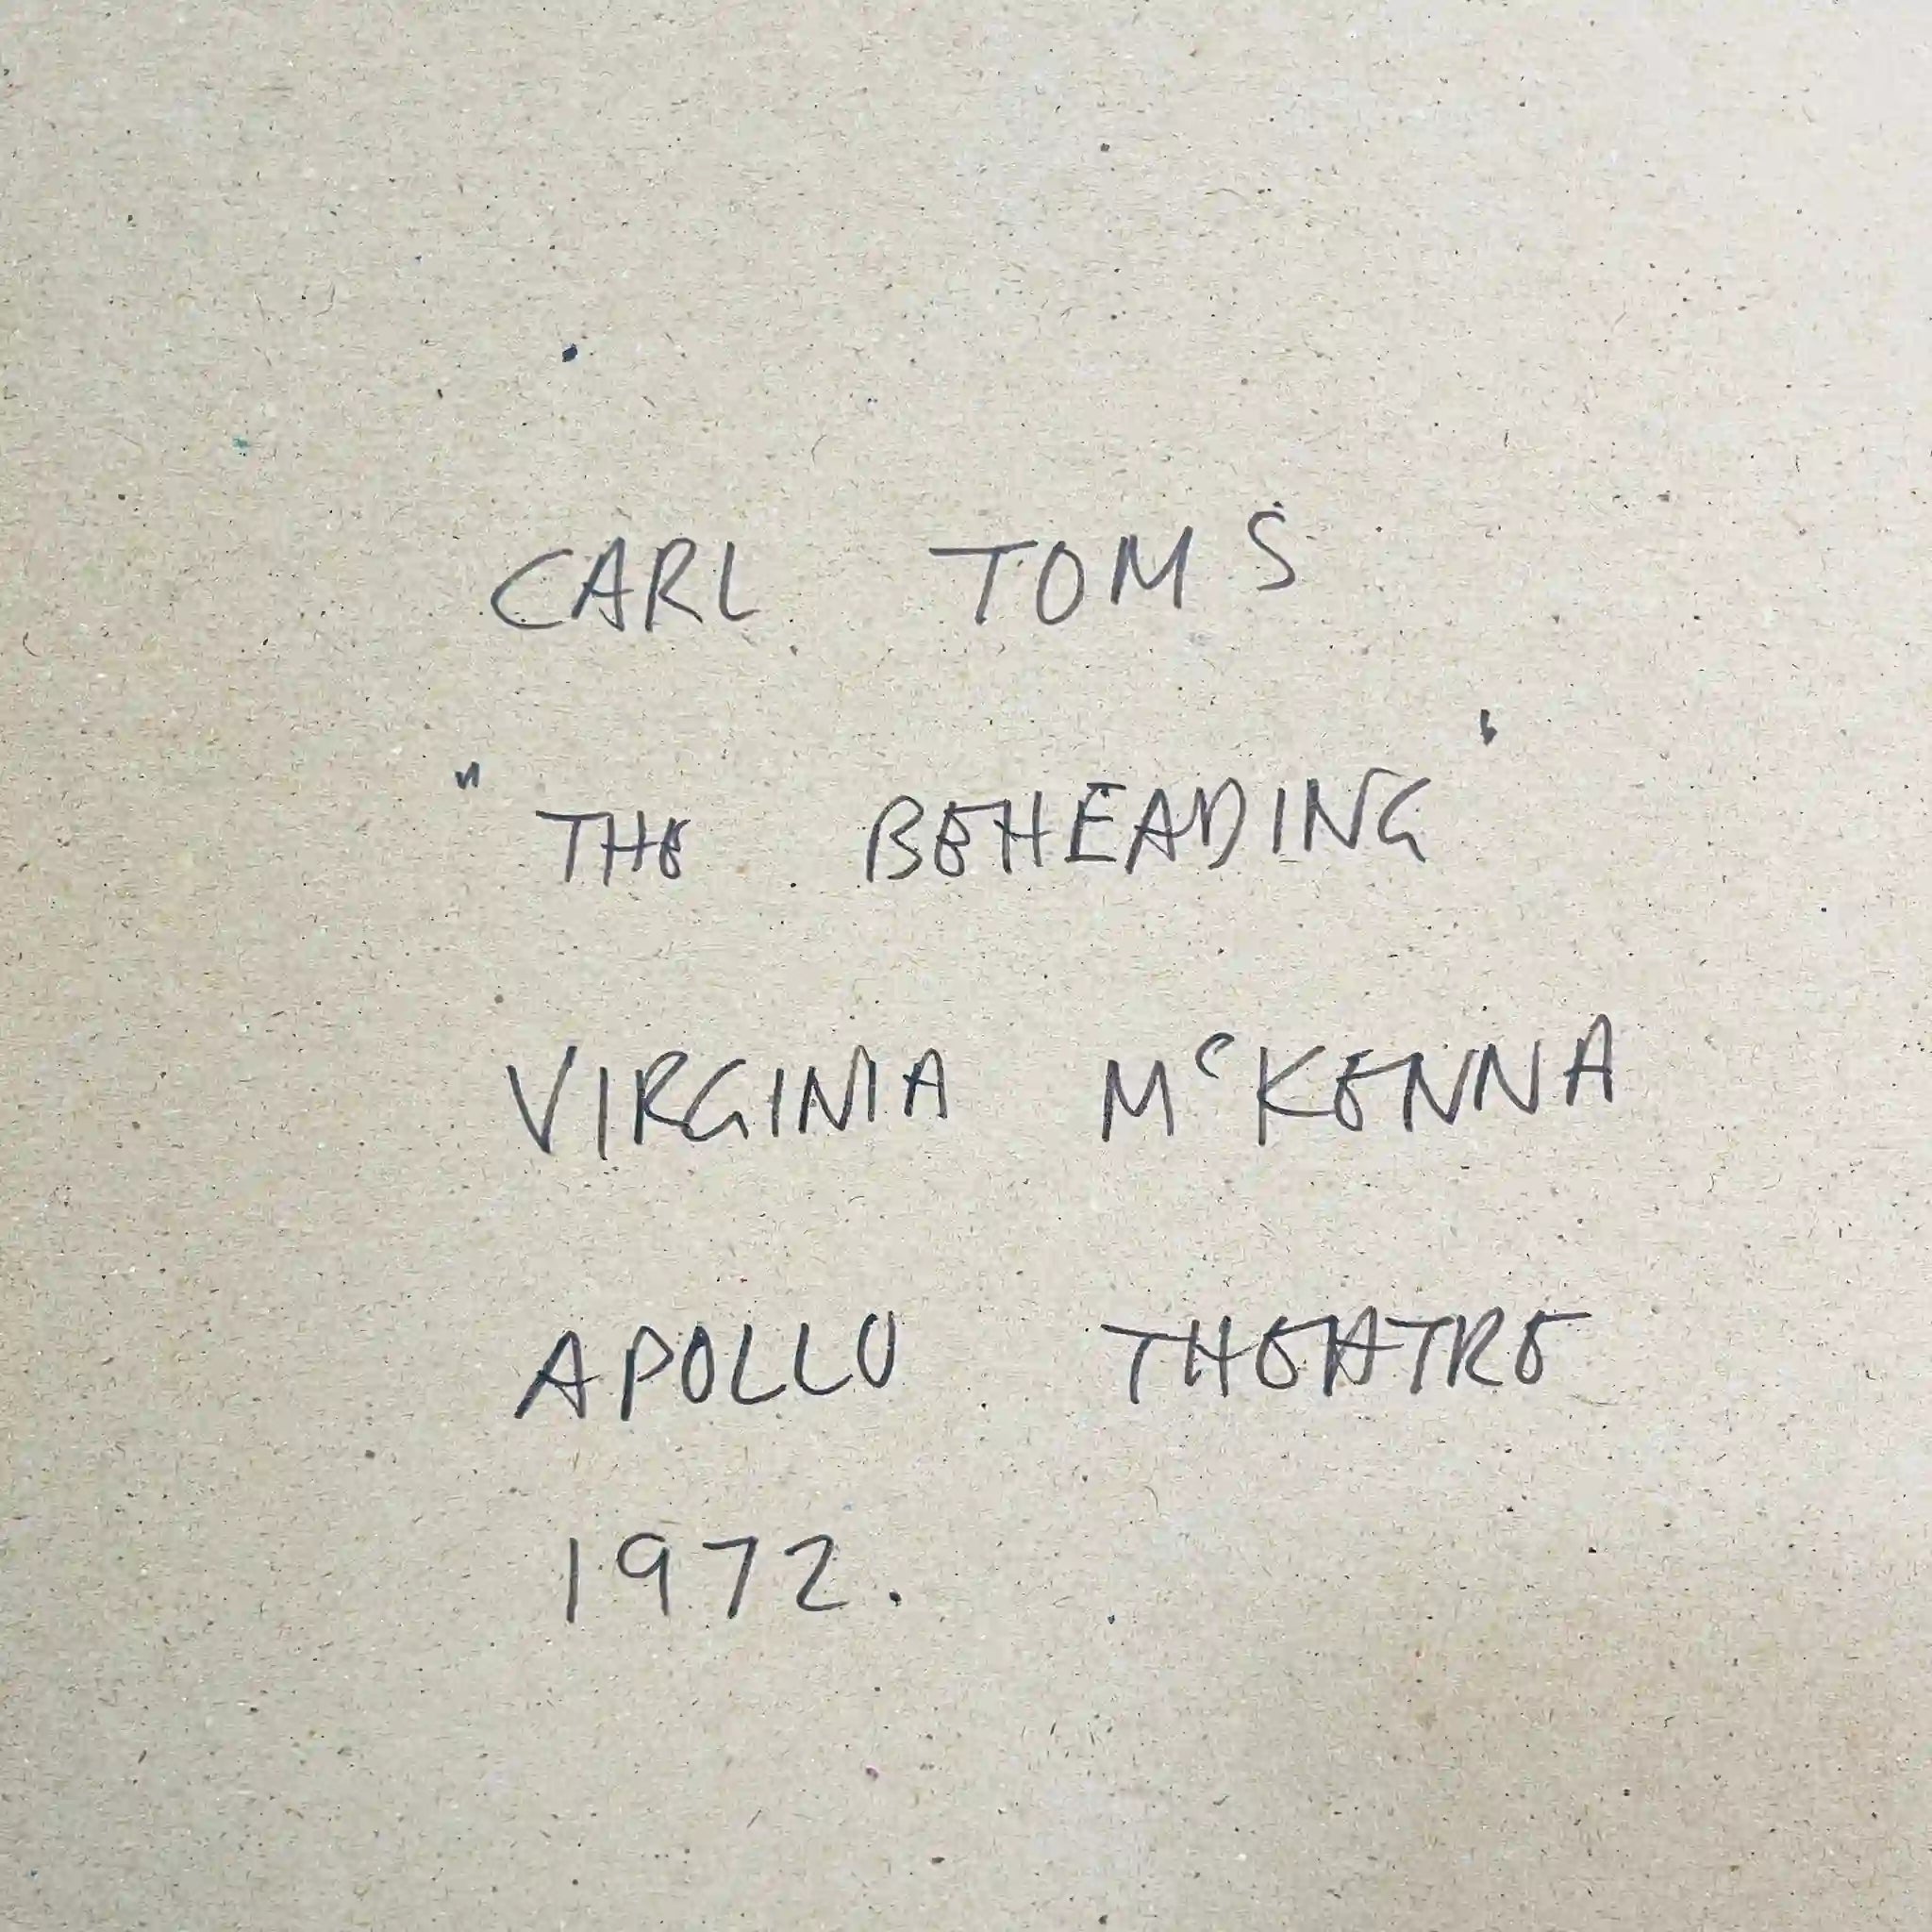 CARL TOMS
"THE BEHEADING"
VIRGINIA McKENNA
APOLLO THEATRE
1972.